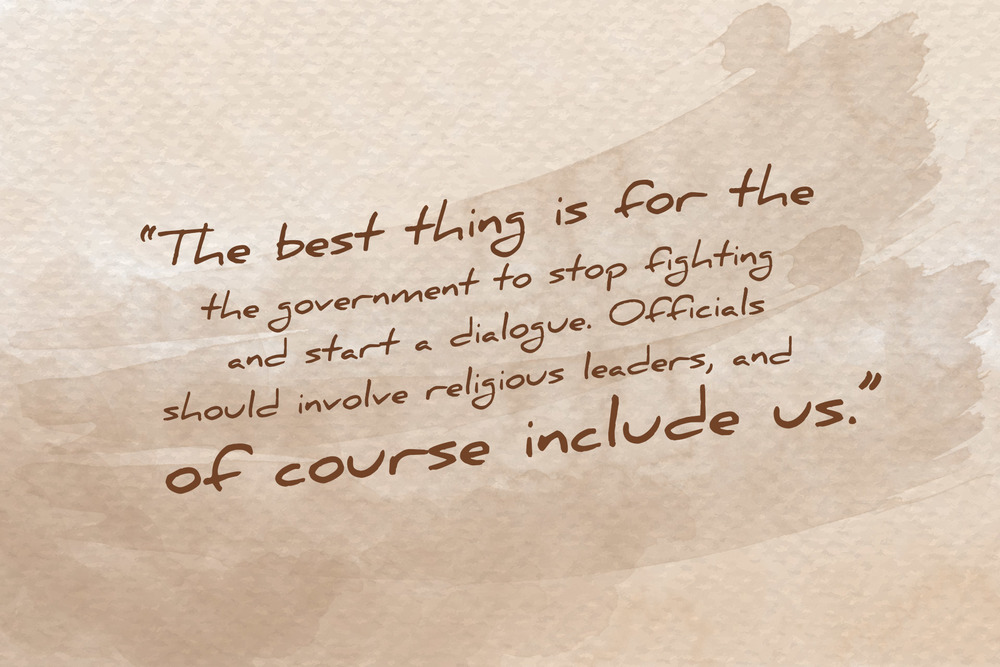 “The best thing is for the
the government to stop fighting
and start a dialogue. Officials
should involve religious leaders, and
of course include us.”